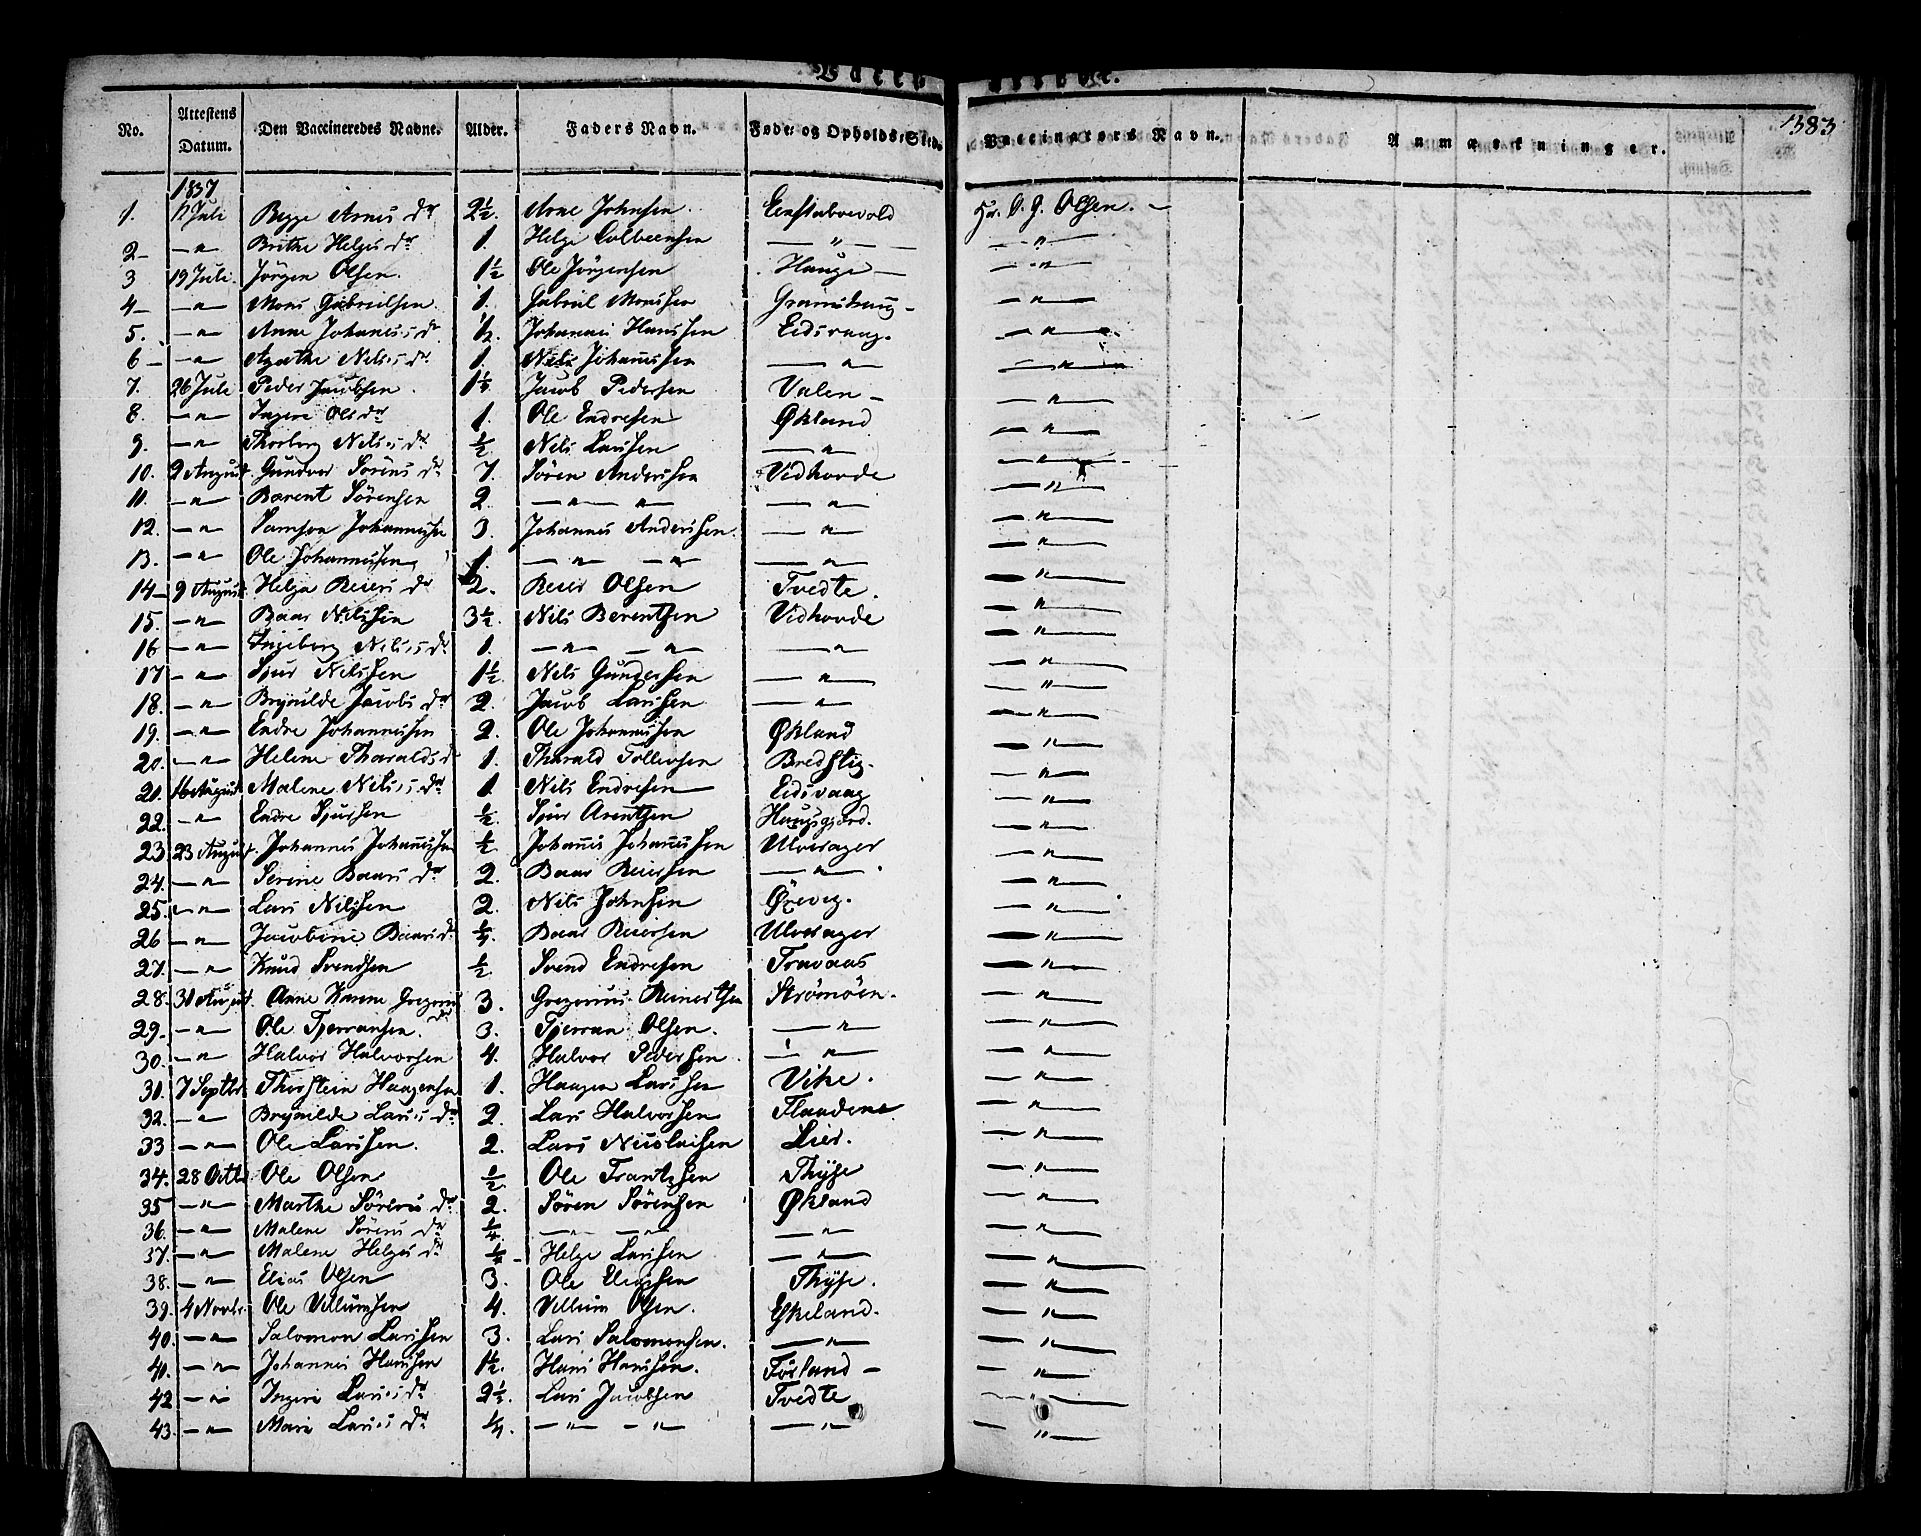 383
No. Attestens Datum. Den Vaccineredes Navne. Alder. Faders Navn. Føde- og Opholds-Sted. Vaccinators Navn. Anmærkninger.
1837
1. 12 Juli Arnes Dr 2½ Arne Johnsen Hr. O. J. Olsen. —
2 — " Brithe Helges Dr 1. Helge — " — — " —
3 19 Juli. Jörgen Olsen. 1½ Ole Jörgensen Hauge — — " —
4 — — " — Mons Gabrielsen. 1. Gabriel Monssen — " —
5. — " — Anne Johannes Dr ½ Johannes Hanssen Eidsvaag. — " —
6 — — " — Agathe Nils Dr 1. Nils Johannessen — " — — " —
7. 26 Juli Peder Jacobsen. Jacob Pedersen Valen — — " —
8. — " — Ingeri Ols Dr 1. Ole Endresen Økland — " —
9. — " — Thorborg Nels Dr ½ Nils Larssen — " — — " —
10. 2 August Gundvor Sörens Dr 7. Sören Anderssen Vidhovde — " —
11. — " — Barent Sörensen 2. — " — " — " — — " —
12. — " — Samson Johannessen 3. Johannes Anderssen. — " — — " —
13. — " — Ole Johannessen 1. — " — — " — " — — " —
14 — 9 August Helga Reiers Dr 2. Reier Olsen Tvedte. — " —
15. — " — Baar Nilssen 3½. Nils Berentsen Vidhovde — " —
16 — " — Ingeborg Nels Dr 1. — " — — " — " — — " —
17 — " — Sjur Nilssen 1½ Nils Gundersen — " — — " —
18. — " — Brynilde Jacobs Dr 2. Jacob Larssen — " — — " —
19. — " — Endre Johannessen 2. Ole Johannessen Økland — " —
20. — " — Helene Tharalds Dr 1. Tharald Tollevsen Bredstig. — " —
21. 16 August Malene Nels Dr 1 Nils Endresen Eidsvaag — " —
22. — " — Endre Sjurssen ½ Sjur Arentsen Haugsgjærd. — " —
23 23 August. Johannes Johannessen ½ Johannes Johannessen Ulverager — " —
24. — " — Serine Baars Dr 2. Baar Reiersen — " — — " —
25. — " — Lars Nilssen 2. Nils Johnsen — " —
26 — " — Jacobine Baars Dr ¼ Baar Reiersen Ulverager — " —
27. — " — Knud Svendsen ½ Svend Endresen Travaas — " —
28. 31 August. Anne Karine Gregorii Dr 3. Gregorius Reinertsen Strømöen. — " —
29. — " — Ole Tjerransen. 3. Tjerran Olsen. — " — — " —
30. — " — Halvor Halvorsen 4. Halvor Pedersen — " — — " —
31. 7 Septbr. Thorstein Haagensen 1. Haagen Larssen Vike. — " —
32. — " — Brynilde Lars Dr 2. Lars Halvorsen — " —
33 — " — Ole Larssen. 2. Lars Nicolaisen Lier. — " —
34. 28 Octbr Ole Olsen ½ Ole Frantzsen Thyse — " —
35 — " — Marthe Sörens Dr 2. Sören Sörensen Økland — " —
36. — " — Malene Sörens Dr ¼ — " — — " — " — — " —
37. — " — Malene Helges Dr Helge Larssen — " — — " —
38. — " — Elias Olsen 3. Ole Eliassen Thyse. — " —
39. 4 Novbr. Ole Villumsen 4. Villum Olsen. — " —
40. — " — Salomon Larssen 3. Lars Salomonsen. — " — — " —
40. — " — Johannes Hanssen 1½. Hans Hanssen. Førland — — " —
42 — " — Ingeri Lars Dr 2½. Lars Jacobsen Tvedte — " —
43. — " — Mari Lars Dr ¼. — " — — " — " — — " —